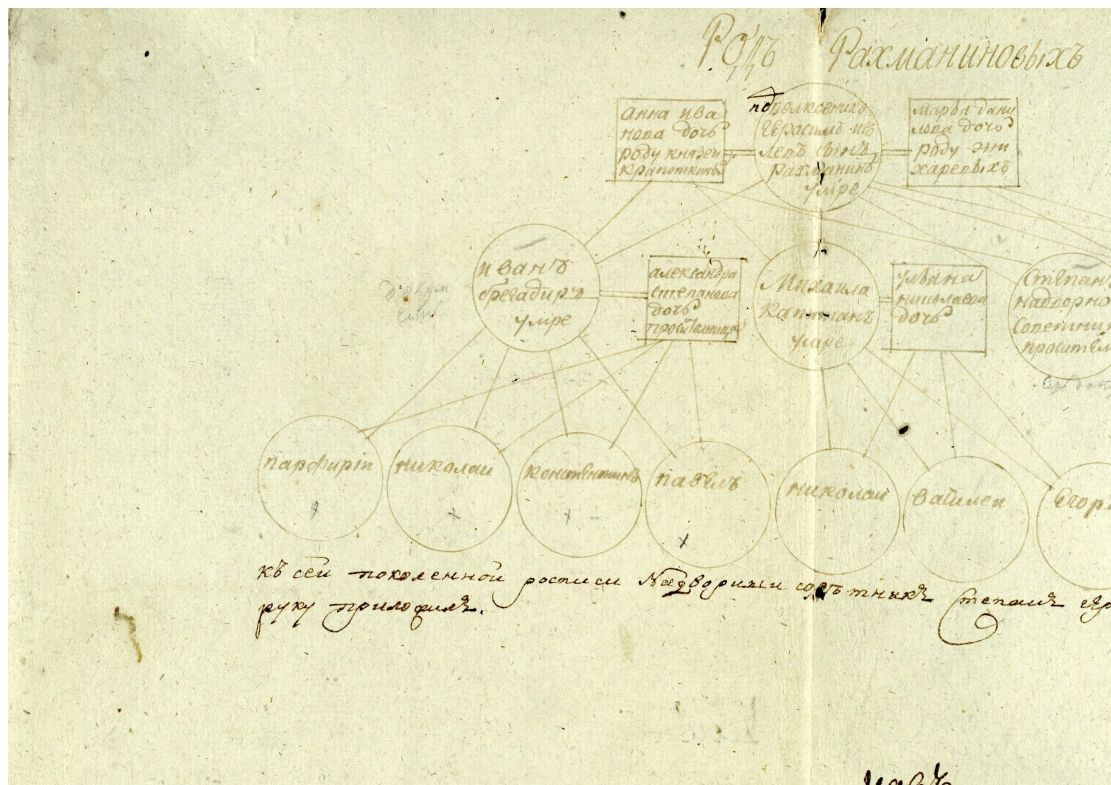 Родъ Рахманиновыхъ
анна ива
нова дочь
роду князей
крапоткины
подполксвникъ
Герасимъ иев
левъ сынъ
Рахманинъ
умре
марья дани
лова дочь
роду эни
харевыхъ
иванъ
брегадиръ
умре
александра
степанова
дочь
Михаила
Капитанъ
умре
ульяна
николаева
дочь
Степанъ
надворно
Советник
просител
парфирiи
николаи
констентинъ
павелъ
николаи
василеи
Егоръ
къ сеи поколенной росписи Надворныи советникъ Степанъ
руку приложилъ.